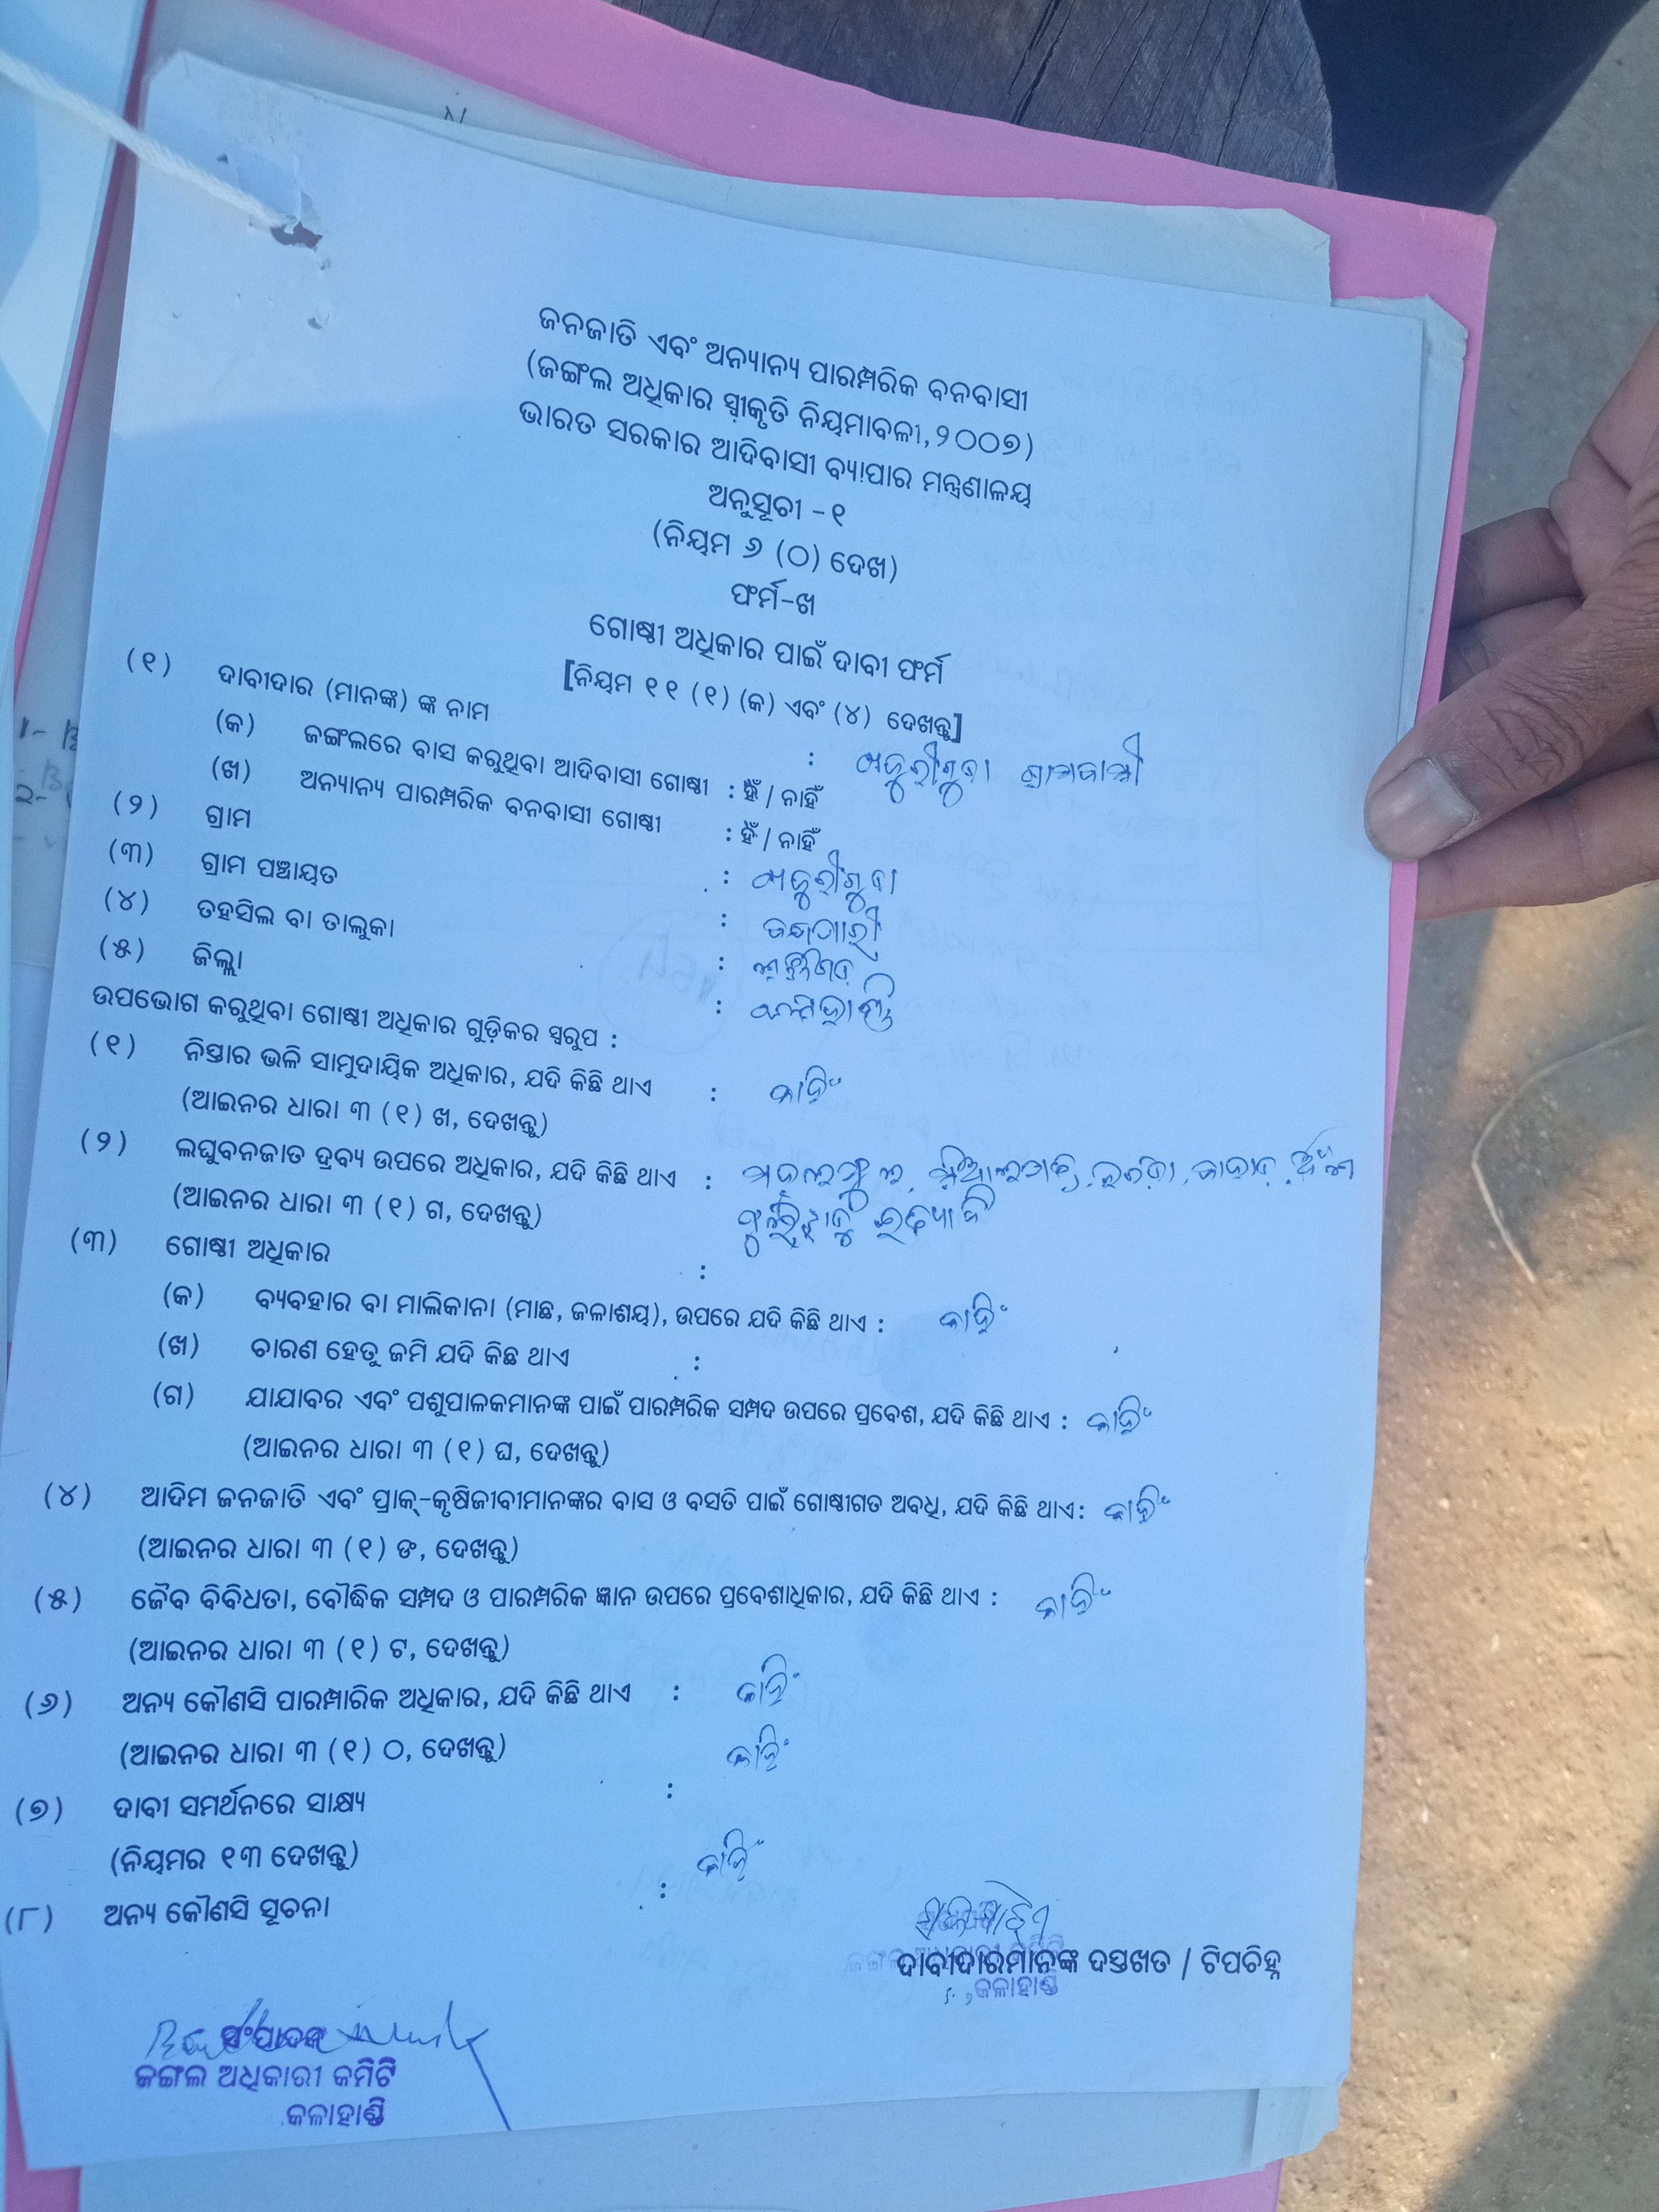 ଜନଜାତି ଏବଂ ଅନ୍ୟାନ୍ୟ ପାରମ୍ପରିକ ବନବାସୀ
(ଜଙ୍ଗଲ ଅଧିକାର ସ୍ୱୀକୃତି ନିୟମାବଳୀ,୨୦୦୭)
ଭାରତ ସରକାର ଆଦିବାସୀ ବ୍ୟାପାର ମନ୍ତ୍ରଣାଳୟ
ଅନୁସୂଚୀ -୧
(ନିୟମ ୬ (ଠ) ଦେଖ)
ଫର୍ମ-ଖ
ଗୋଷ୍ଠୀ ଅଧିକାର ପାଇଁ ଦାବୀ ଫର୍ମ
[ନିୟମ ୧୧ (୧) (କ) ଏବଂ (୪) ଦେଖନ୍ତୁ]
(୧) ଦାବୀଦାର (ମାନଙ୍କ) ଙ୍କ ନାମ : ଖଜୁରୀଗୁଡା ଗ୍ରାମବାସୀ
(କ) ଜଙ୍ଗଲରେ ବାସ କରୁଥିବା ଆଦିବାସୀ ଗୋଷ୍ଠୀ : ହଁ / ନାହିଁ
(ଖ) ଅନ୍ୟାନ୍ୟ ପାରମ୍ପରିକ ବନବାସୀ ଗୋଷ୍ଠୀ : ହଁ / ନାହିଁ
(୨) ଗ୍ରାମ : ଖଜୁରୀଗୁଡା
(୩) ଗ୍ରାମ ପଞ୍ଚାୟତ :
(୪) ତହସିଲ ବା ତାଲୁକା :
(୫) ଜିଲ୍ଲା : କଳାହାଣ୍ଡି
ଉପଭୋଗ କରୁଥିବା ଗୋଷ୍ଠୀ ଅଧିକାର ଗୁଡ଼ିକର ସ୍ୱରୁପ :
(୧) ନିସ୍ତାର ଭଳି ସାମୁଦାୟିକ ଅଧିକାର, ଯଦି କିଛି ଥାଏ : ନାହିଁ
(ଆଇନର ଧାରା ୩ (୧) ଖ, ଦେଖନ୍ତୁ)
(୨) ଲଘୁବନଜାତ ଦ୍ରବ୍ୟ ଉପରେ ଅଧିକାର, ଯଦି କିଛି ଥାଏ :
(ଆଇନର ଧାରା ୩ (୧) ଗ, ଦେଖନ୍ତୁ) ଇତ୍ୟାଦି
(୩) ଗୋଷ୍ଠୀ ଅଧିକାର :
(କ) ବ୍ୟବହାର ବା ମାଲିକାନା (ମାଛ, ଜଳାଶୟ), ଉପରେ ଯଦି କିଛି ଥାଏ : ନାହିଁ
(ଖ) ଚାରଣ ହେତୁ ଜମି ଯଦି କିଛ ଥାଏ :
(ଗ) ଯାଯାବର ଏବଂ ପଶୁପାଳକମାନଙ୍କ ପାଇଁ ପାରମ୍ପରିକ ସମ୍ପଦ ଉପରେ ପ୍ରବେଶ, ଯଦି କିଛି ଥାଏ : ନାହିଁ
(ଆଇନର ଧାରା ୩ (୧) ଘ, ଦେଖନ୍ତୁ)
(୪) ଆଦିମ ଜନଜାତି ଏବଂ ପ୍ରାକ୍-କୃଷିଜୀବୀମାନଙ୍କର ବାସ ଓ ବସତି ପାଇଁ ଗୋଷ୍ଠୀଗତ ଅବଧି, ଯଦି କିଛି ଥାଏ : ନାହିଁ
(ଆଇନର ଧାରା ୩ (୧) ଙ, ଦେଖନ୍ତୁ)
(୫) ଜୈବ ବିବିଧତା, ବୌଦ୍ଧିକ ସମ୍ପଦ ଓ ପାରମ୍ପରିକ ଜ୍ଞାନ ଉପରେ ପ୍ରବେଶାଧିକାର, ଯଦି କିଛି ଥାଏ : ନାହିଁ
(ଆଇନର ଧାରା ୩ (୧) ଟ, ଦେଖନ୍ତୁ)
(୬) ଅନ୍ୟ କୌଣସି ପାରମ୍ପାରିକ ଅଧିକାର, ଯଦି କିଛି ଥାଏ : ନାହିଁ
(ଆଇନର ଧାରା ୩ (୧) ଠ, ଦେଖନ୍ତୁ) ନାହିଁ
(୭) ଦାବୀ ସମର୍ଥନରେ ସାକ୍ଷ୍ୟ :
(ନିୟମର ୧୩ ଦେଖନ୍ତୁ) ନାହିଁ
(୮) ଅନ୍ୟ କୌଣସି ସୂଚନା :
ଦାବୀଦାରମାନଙ୍କ ଦସ୍ତଖତ / ଟିପଚିହ୍ନ
କଳାହାଣ୍ଡି
ସଂପାଦକ
ଜଙ୍ଗଲ ଅଧିକାରୀ କମିଟି
କଳାହାଣ୍ଡି